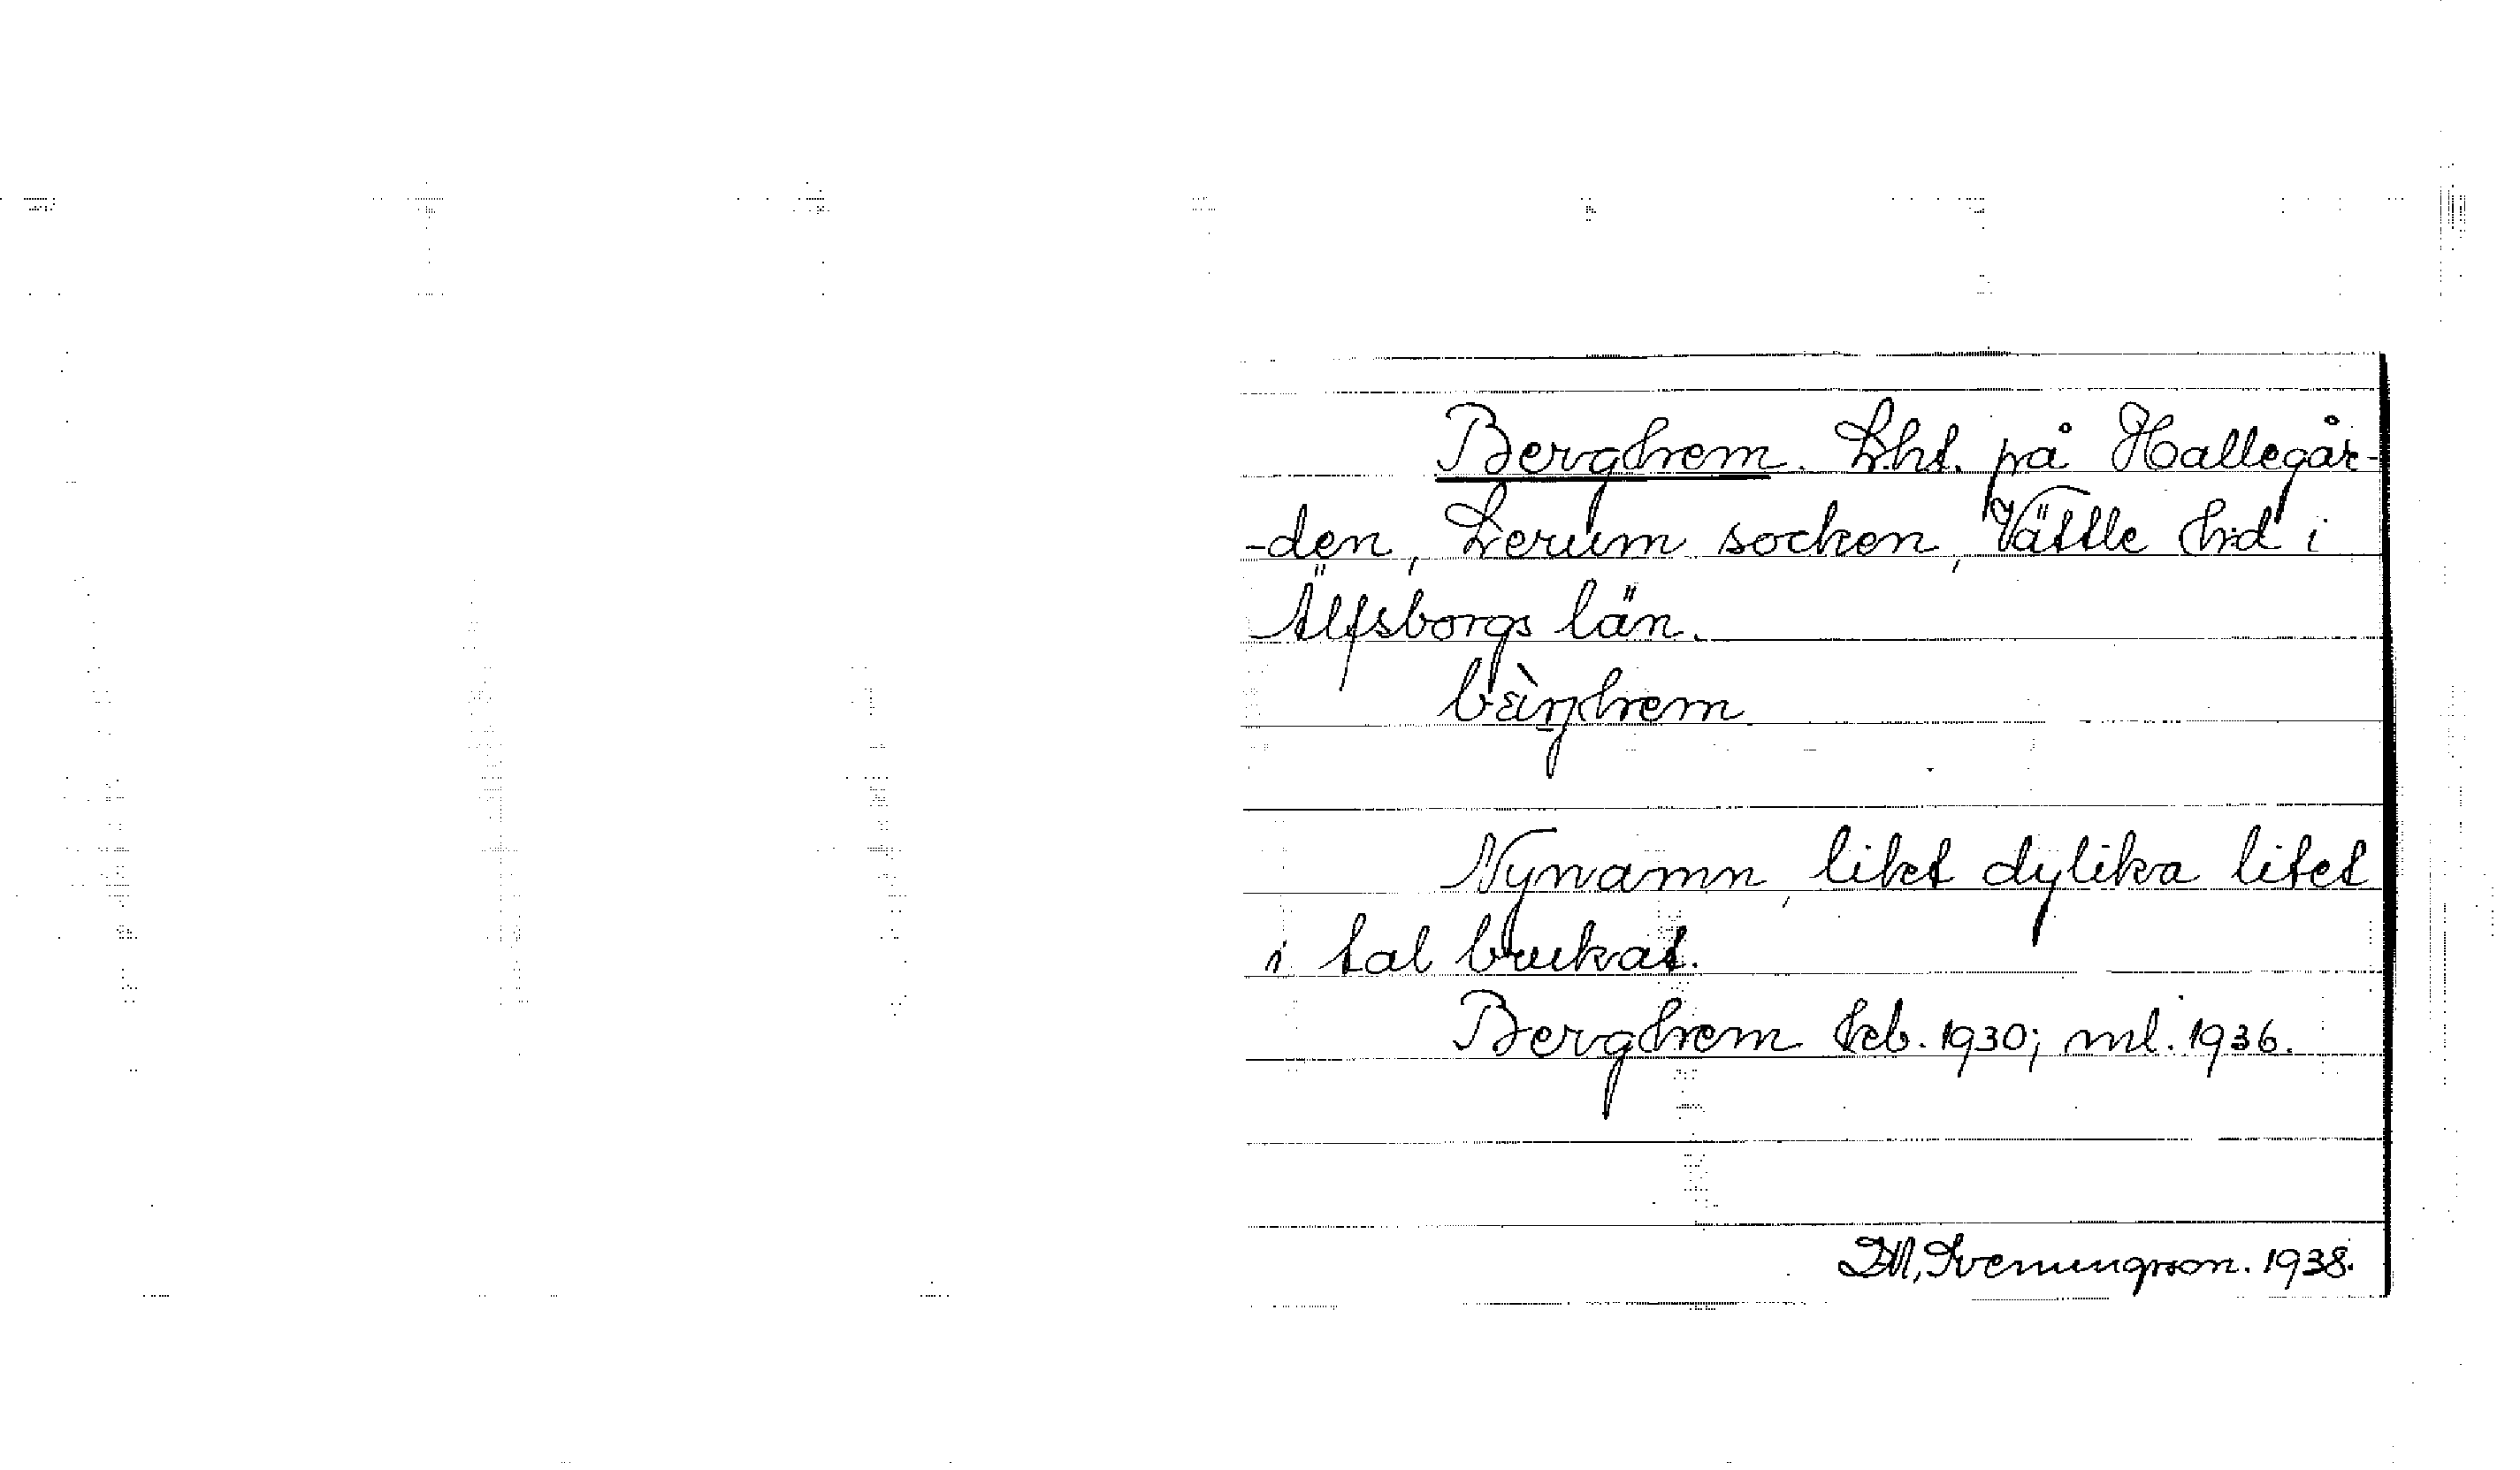 Berghem. Lht. på Hallegår-
-den, Lerum socken, Vättle hd i
Älfsborgs län.
bæ̀rjhem
Nynamn, likt dylika litet
i tal brukat.
Berghem keb. 1930; ml. 1936.
D.M. Svenungsson. 1938.